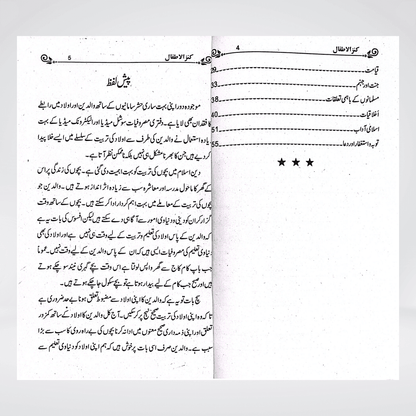 4 کنز الاطفال
قیامت 29
جنت اور جہنم 33
مسلمانوں کے باہمی تعلقات 38
اخلاقیات 40
اسلامی آداب 51
توبہ و استغفار اور دعا 55
★ ★ ★
کنز الاطفال 5
پیش لفظ
موجودہ دور اپنی بہت ساری حشر سامانیوں کے ساتھ والدین اور اولاد میں رابطے
کا فقدان بھی لایا ہے۔ دفتری مصروفیات سوشل میڈیا اور الیکٹرونک میڈیا کے بہت
زیادہ استعمال نے والدین کی طرف سے اولاد کی تربیت کے سلسلے میں ایسے خلا پیدا
کر دیے ہیں جن کا بھرنا مشکل ہی نہیں بلکہ ناممکن نظر آتا ہے۔
دین اسلام میں بچوں کی تربیت کو بہت اہمیت دی گئی ہے۔ بچوں کی زندگی پر اس
کے گھر کا ماحول مدرسہ اور معاشرہ سب سے زیادہ اثر انداز ہوتے ہیں۔ والدین جو
بچوں کی تربیت کے معاملے میں بہت اہم کردار ادا کر سکتے ہیں۔ بچوں کے ساتھ وقت
گزار کر ان کو دینی و دنیاوی امور سے آگاہی دے سکتے ہیں لیکن افسوس کی بات یہ ہے
کہ والدین کے پاس اولاد کی تعلیم و تربیت کے لیے وقت ہی نہیں ہے اور اولاد کی بھی
دنیاوی تعلیم کی مصروفیات ایسی ہیں کہ ان کے پاس والدین کے لیے وقت نہیں۔ عموماً
جب باپ کام کاج سے گھر واپس لوٹتا ہے اس وقت بچے گہری نیند سو چکے ہوتے
ہیں اور صبح جب کام کے لیے بیدار ہوتا ہے تو بچے سکول جا چکے ہوتے ہیں۔
سچ بات تو یہ ہے کہ والدین کا اپنی اولاد سے مضبوط تعلق ہونا بے حد ضروری ہے
تاکہ وہ اپنی اولاد کی تربیت صحیح نہج پر کر سکیں۔ آج کل والدین کا اولاد کے ساتھ کمزور
تعلق اور اپنی ذمہ داری صحیح معنوں میں ادا نہ کرنا بچوں کی بے راہ روی کا سب سے بڑا
سبب ہے۔ والدین صرف اسی بات پر خوش ہیں کہ ہم اپنی اولاد کو دنیاوی تعلیم سے